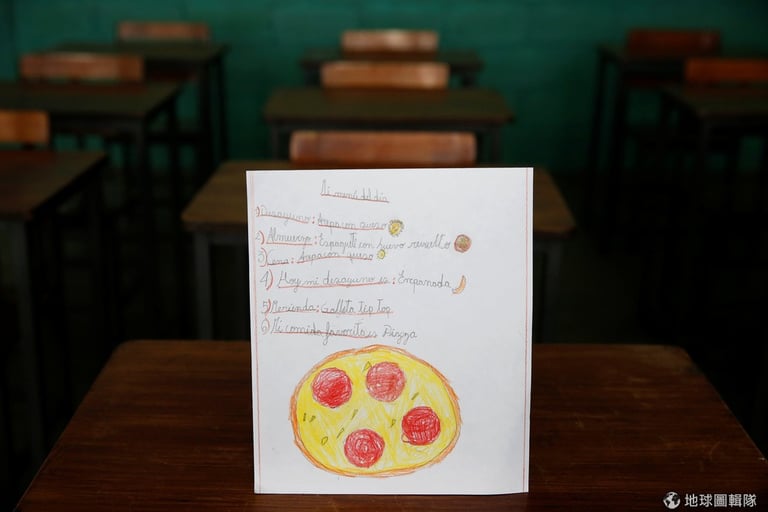 Mi menú del día
1) Desayuno: Arepa con queso
2) Almuerzo: Espagueti con huevo revuelto
3) Cena: Arepa con queso
4) Hoy mi desayuno es: Empanada
5) Merienda: Galleta tip top
6) Mi comida favorita es Pizza
地球圖輯隊